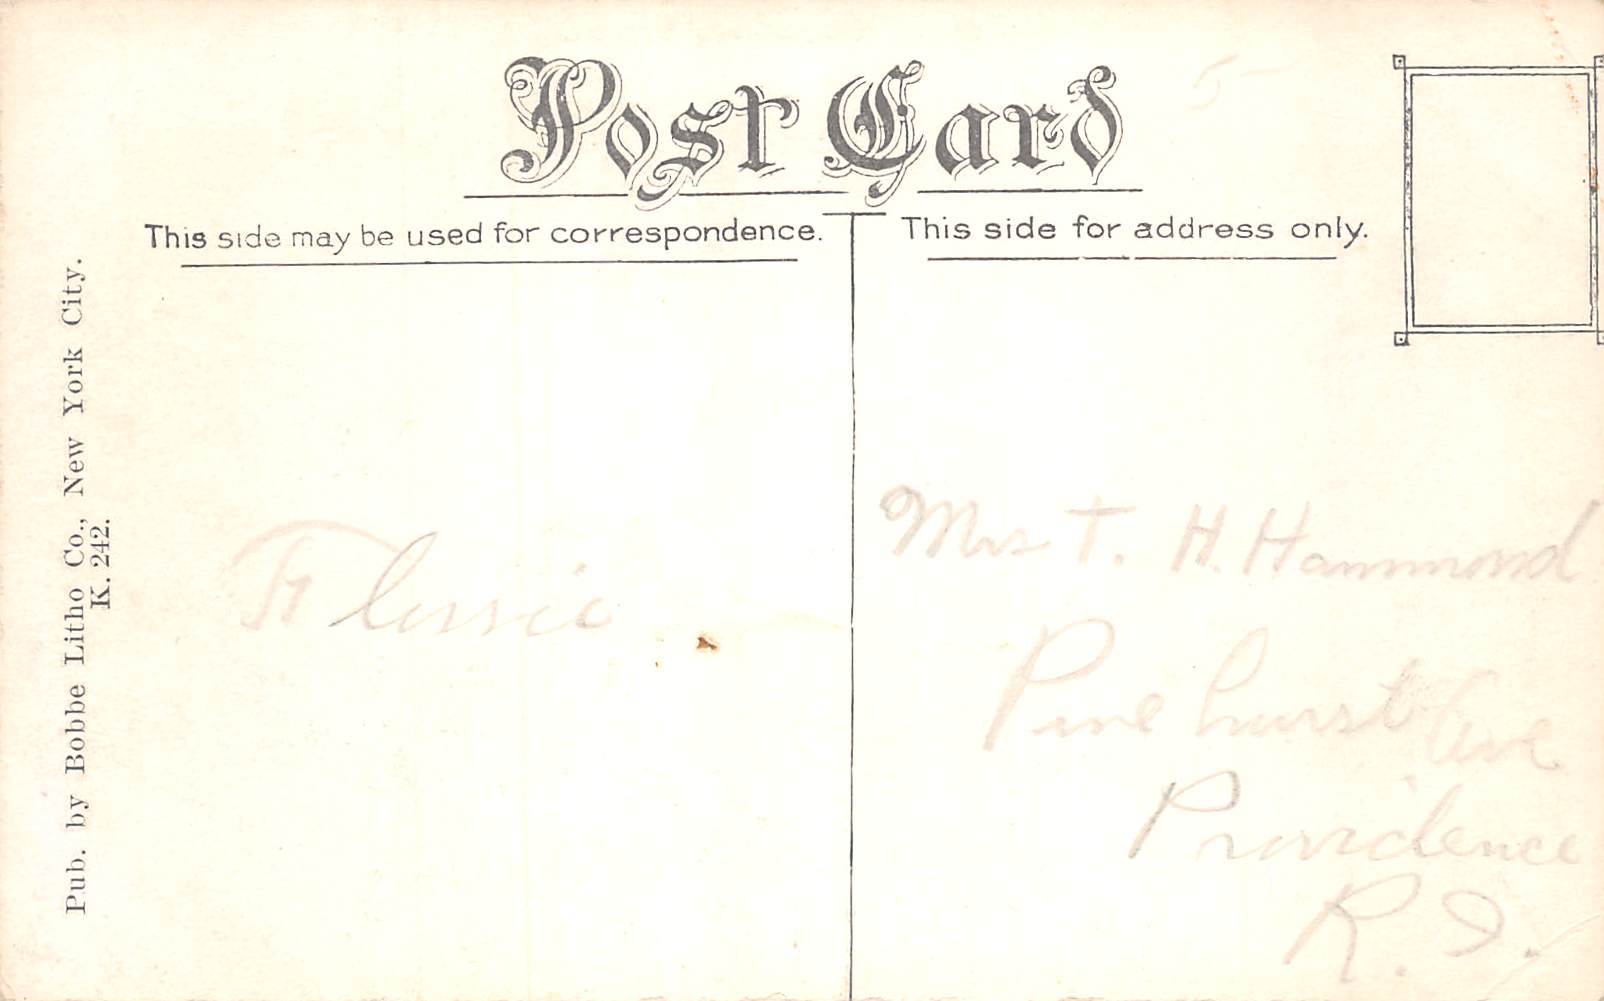 Post Card
5-
This side may be used for correspondence.
This side for address only.
Pub. by Bobbe Litho Co., New York City.
K. 242.
Mrs T. H. Hammond
Pinehurst Ave
Providence
R. I.